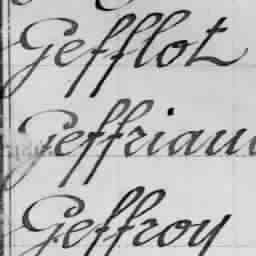 Gefflot
Geffriau
Geffroy